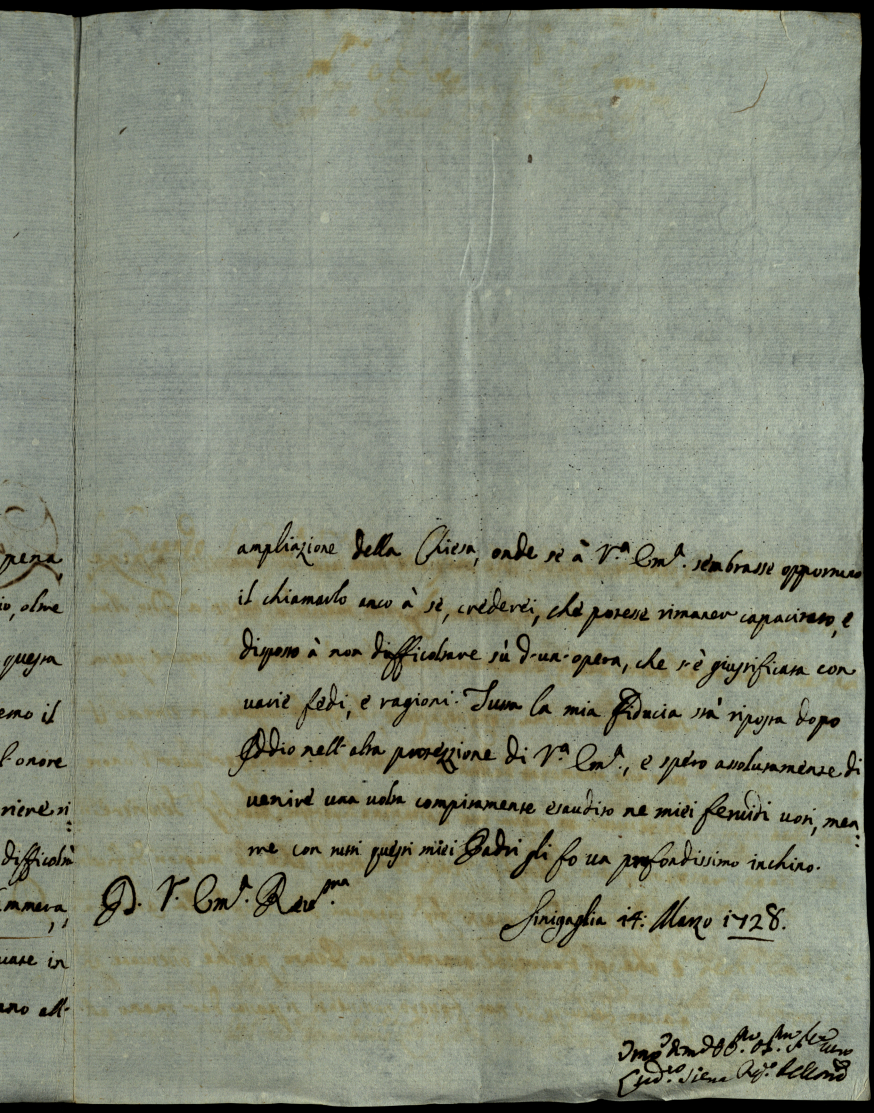 pena
io, oltre
questa
emo il
l'onore
riere ri:
difficoltà
ammera,
uare in
ano all-
ampliazione della Chiesa, onde se à V.ª Em.ª sembrasse opportuno
il chiamarlo anco à se, crederei, che potesse rimaner capacitato, e
disposto à non difficoltare sù d-un-opera, che s'è giustificata con
varie fedi, e ragioni. Tutta la mia Fiducia stà riposta dopo
Iddio nell'alta protezzione di V.ª Em.ª, e spero assolutamente di
venire una volta compitamente esaudito ne miei fervidi voti, men:
tre con tutti questi miei Padri gli fo un profondissimo inchino.
D. V. Em.ª Rev.ma
Sinigaglia 14: Marzo 1728.